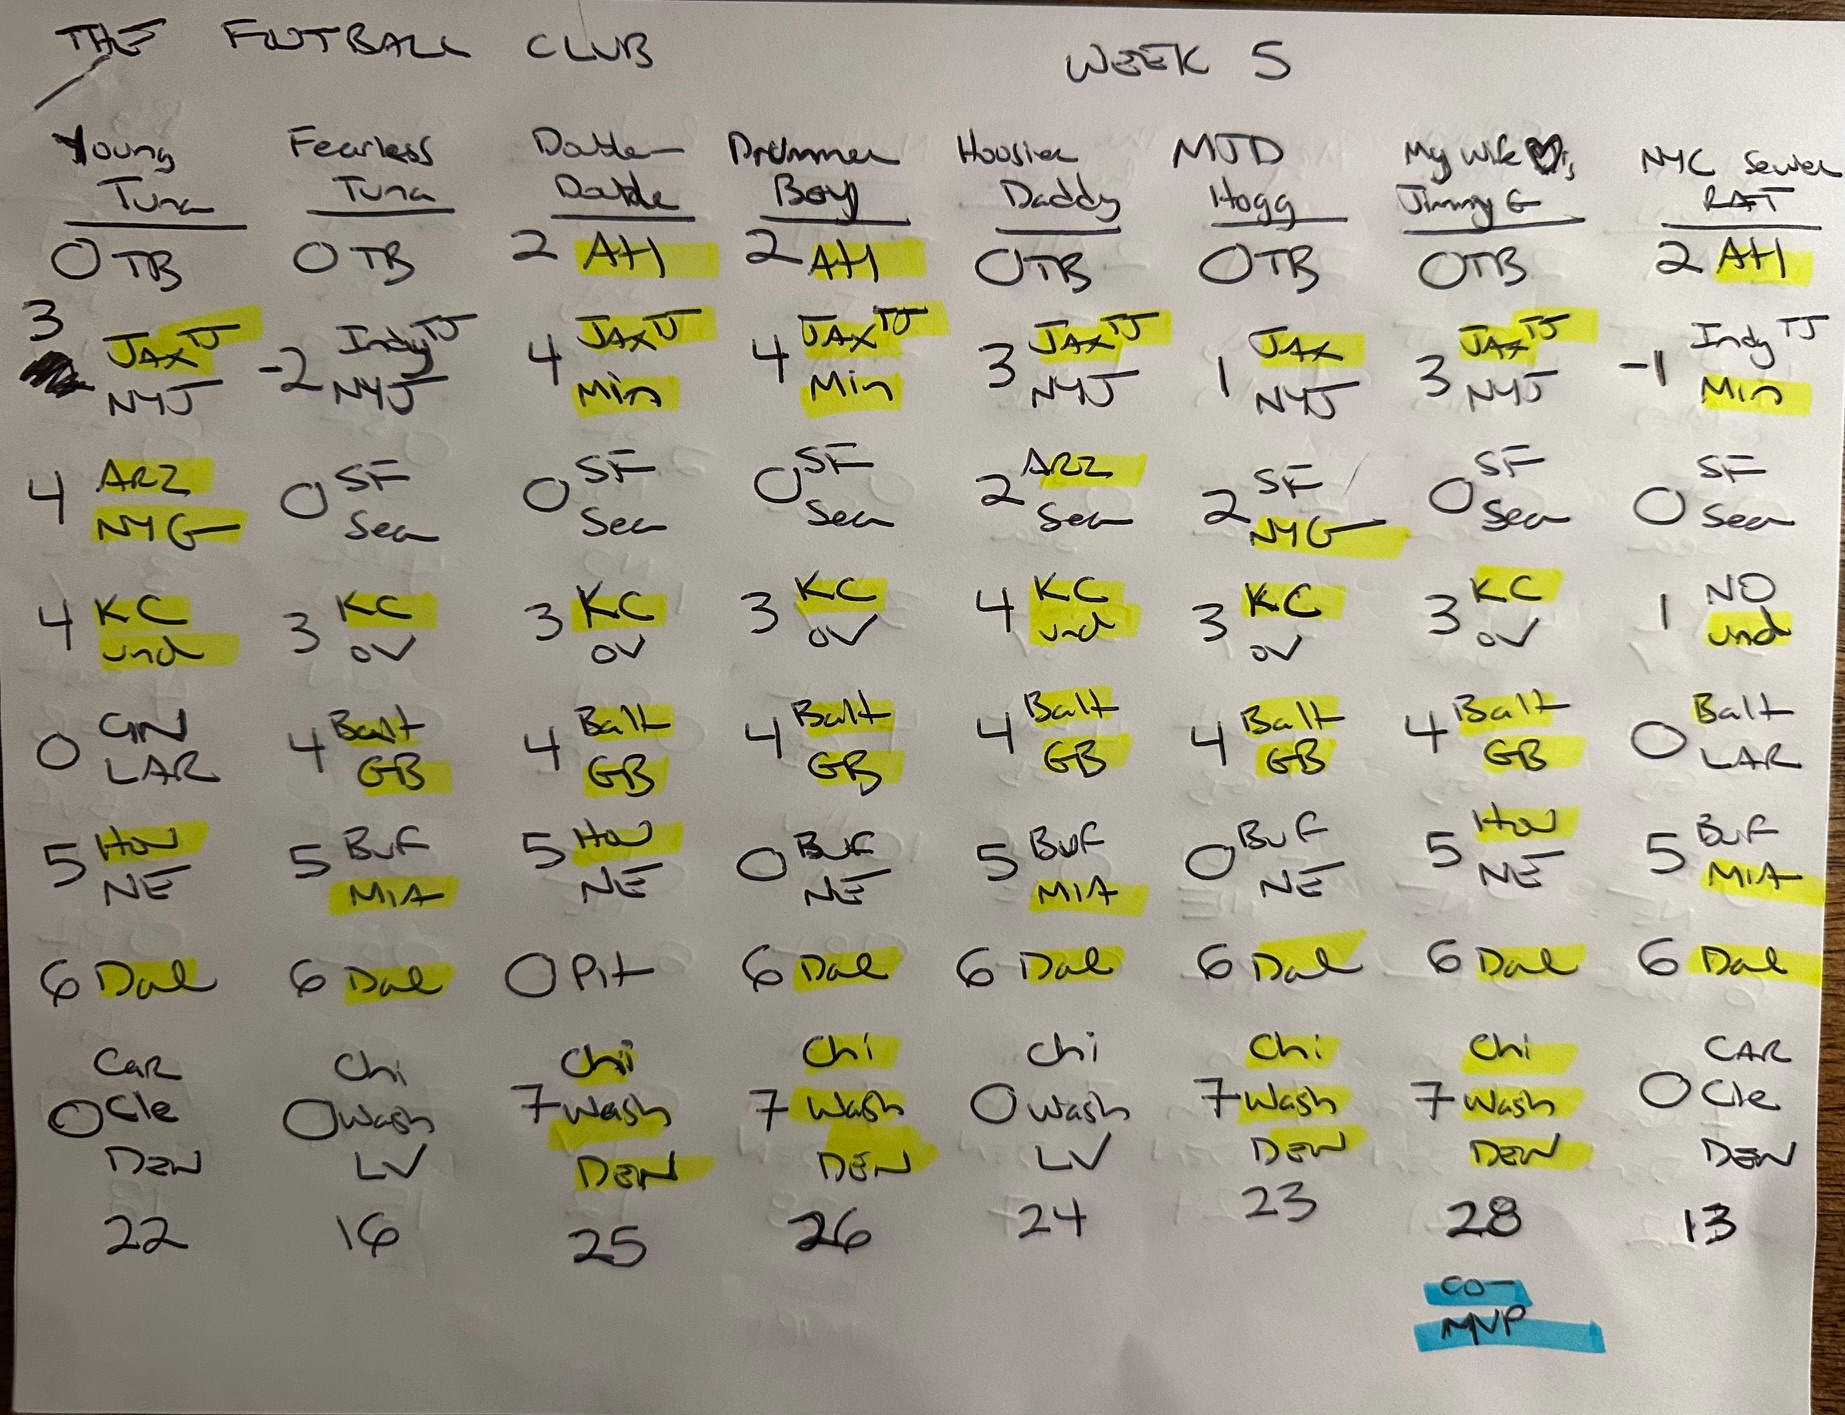 THE FOOTBALL CLUB WEEK 5
Young Fearless Double Drummer Hoosier MJD My Wife ♥'s NYC Sewer
Tuna Tuna Double Boy Daddy Hogg Jimmy G RAT
0 TB 0 TB 2 Atl 2 Atl 0 TB 0 TB 0 TB 2 Atl
3 JAX TJ Indy TJ JAX TJ JAX TJ JAX TJ JAX JAX TJ Indy TJ
NYJ -2 NYJ 4 Min 4 Min 3 NYJ 1 NYJ 3 NYJ -1 Min
4 ARZ 0 SF 0 SF 0 SF 2 ARZ 2 SF 0 SF 0 SF
NYG Sea Sea Sea Sea NYG Sea Sea
4 KC 3 KC 3 KC 3 KC 4 KC 3 KC 3 KC 1 NO
und OV OV OV und OV OV und
0 CIN 4 Balt 4 Balt 4 Balt 4 Balt 4 Balt 4 Balt 0 Balt
LAR GB GB GB GB GB GB LAR
5 Hou 5 BUF 5 Hou 0 BUF 5 BUF 0 BUF 5 Hou 5 BUF
NE MIA NE NE MIA NE NE MIA
6 Dal 6 Dal 0 Pit 6 Dal 6 Dal 6 Dal 6 Dal 6 Dal
Car Chi Chi Chi Chi Chi Chi CAR
0 Cle 0 Wash 7 Wash 7 Wash 0 Wash 7 Wash 7 Wash 0 Cle
DEN LV DEN DEN LV DEN DEN DEN
22 16 25 26 24 23 28 13
CO-
MVP